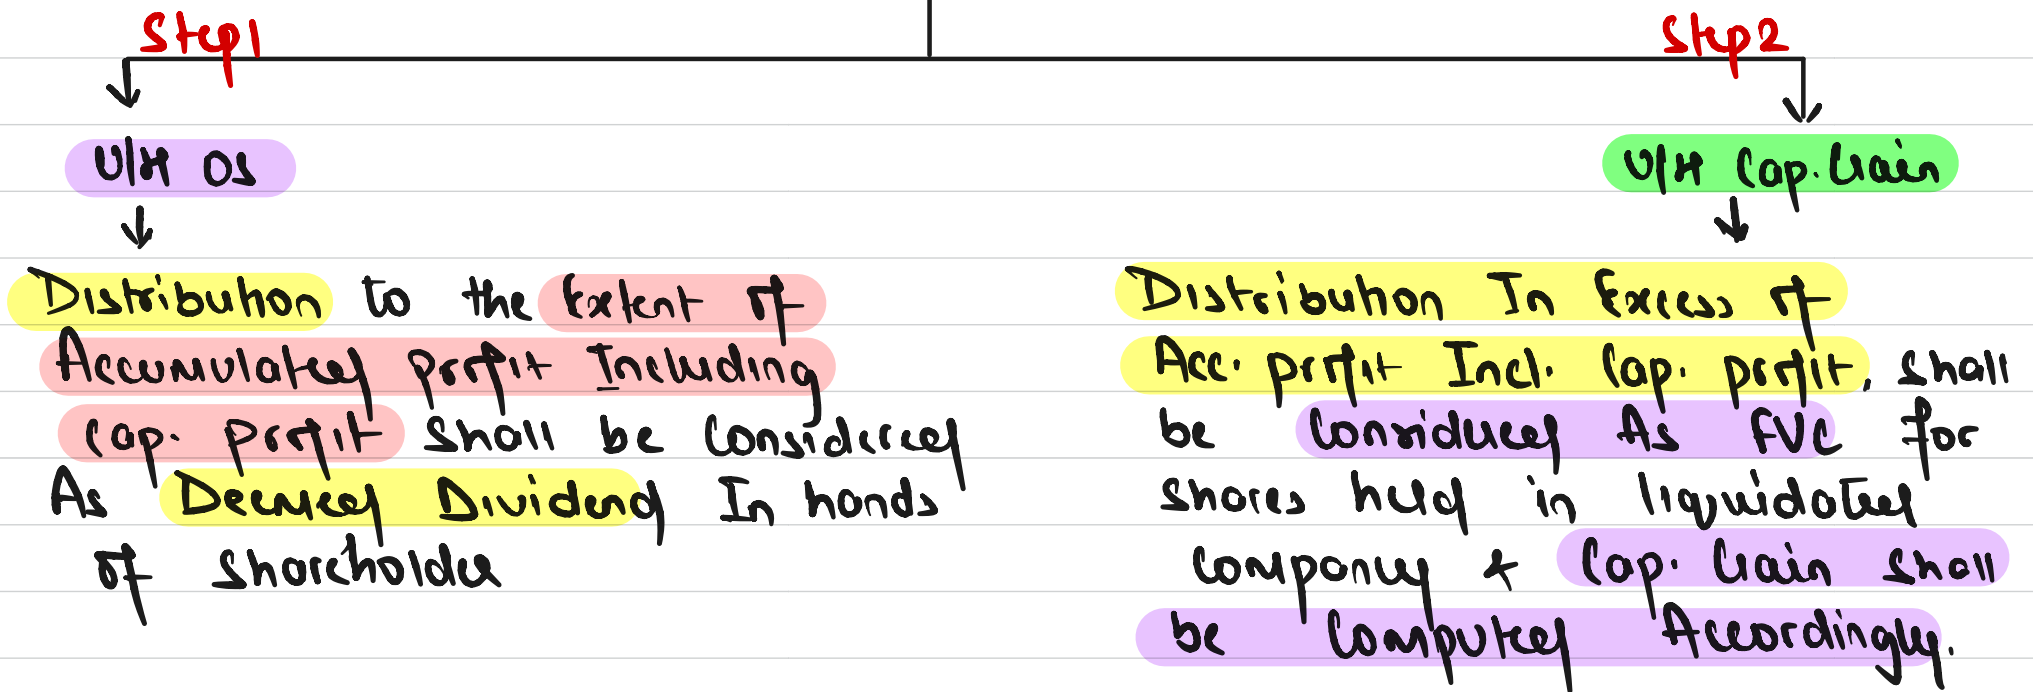 Step1
Step2
U/H OS
U/H Cap. Gain
Distribution to the Extent of
Accumulated profit Including
Cap. profit shall be Considered
As Deemed Dividend In hands
of shareholder
Distribution In Excess of
Acc. profit Incl. Cap. profit, shall
be Considered As FVC for
shares held in liquidated
Company & Cap. Gain shall
be Computed Accordingly.